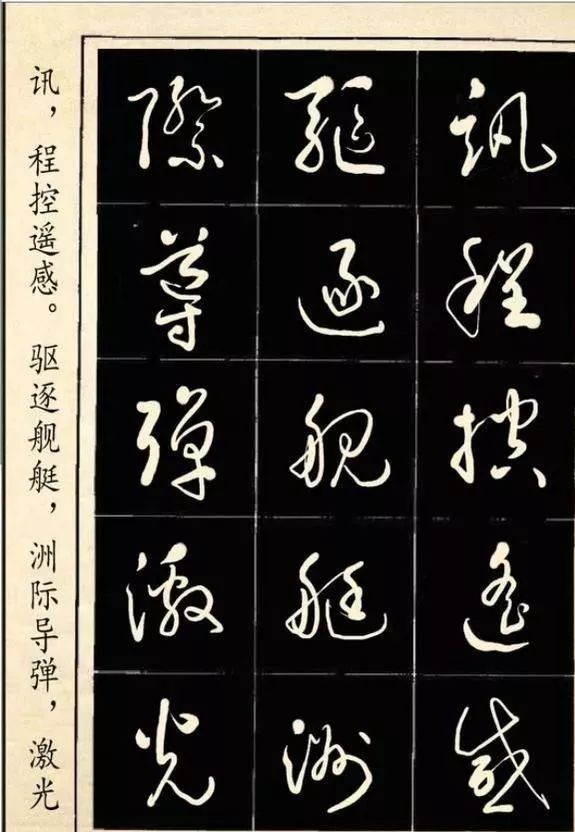 訊程控遙感
驅逐舰艇洲
際導彈激光
讯，程控遥感。驱逐舰艇，洲际导弹，激光